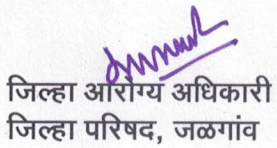 जिल्हा आरोग्य अधिकारी
जिल्हा परिषद, जळगांव